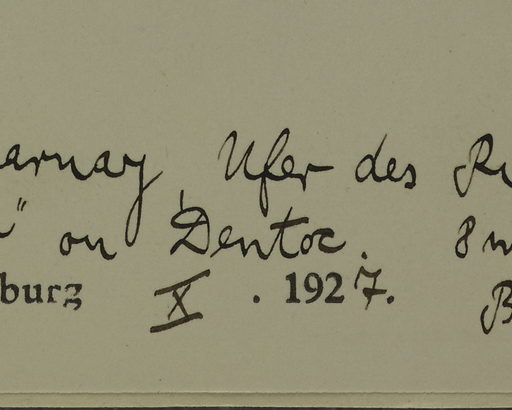 arnay, Ufer des
" ou Dentoc. 8 m
burg X . 1927.